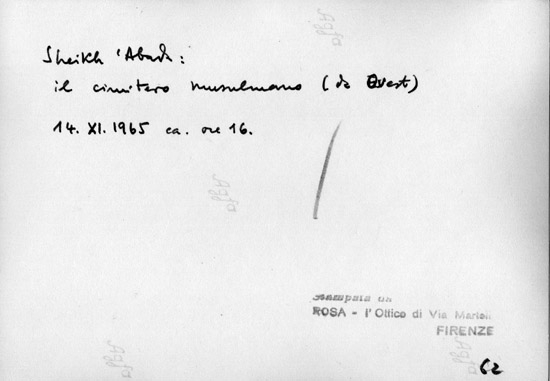 Sheikh 'Abadh:
il cimitero musulmano (da Ovest)
14. XI. 1965 ca. ore 16.
Agfa
Agfa
Stampata da
ROSA - l'Ottico di Via Martelli
FIRENZE
Agfa
Agfa
62